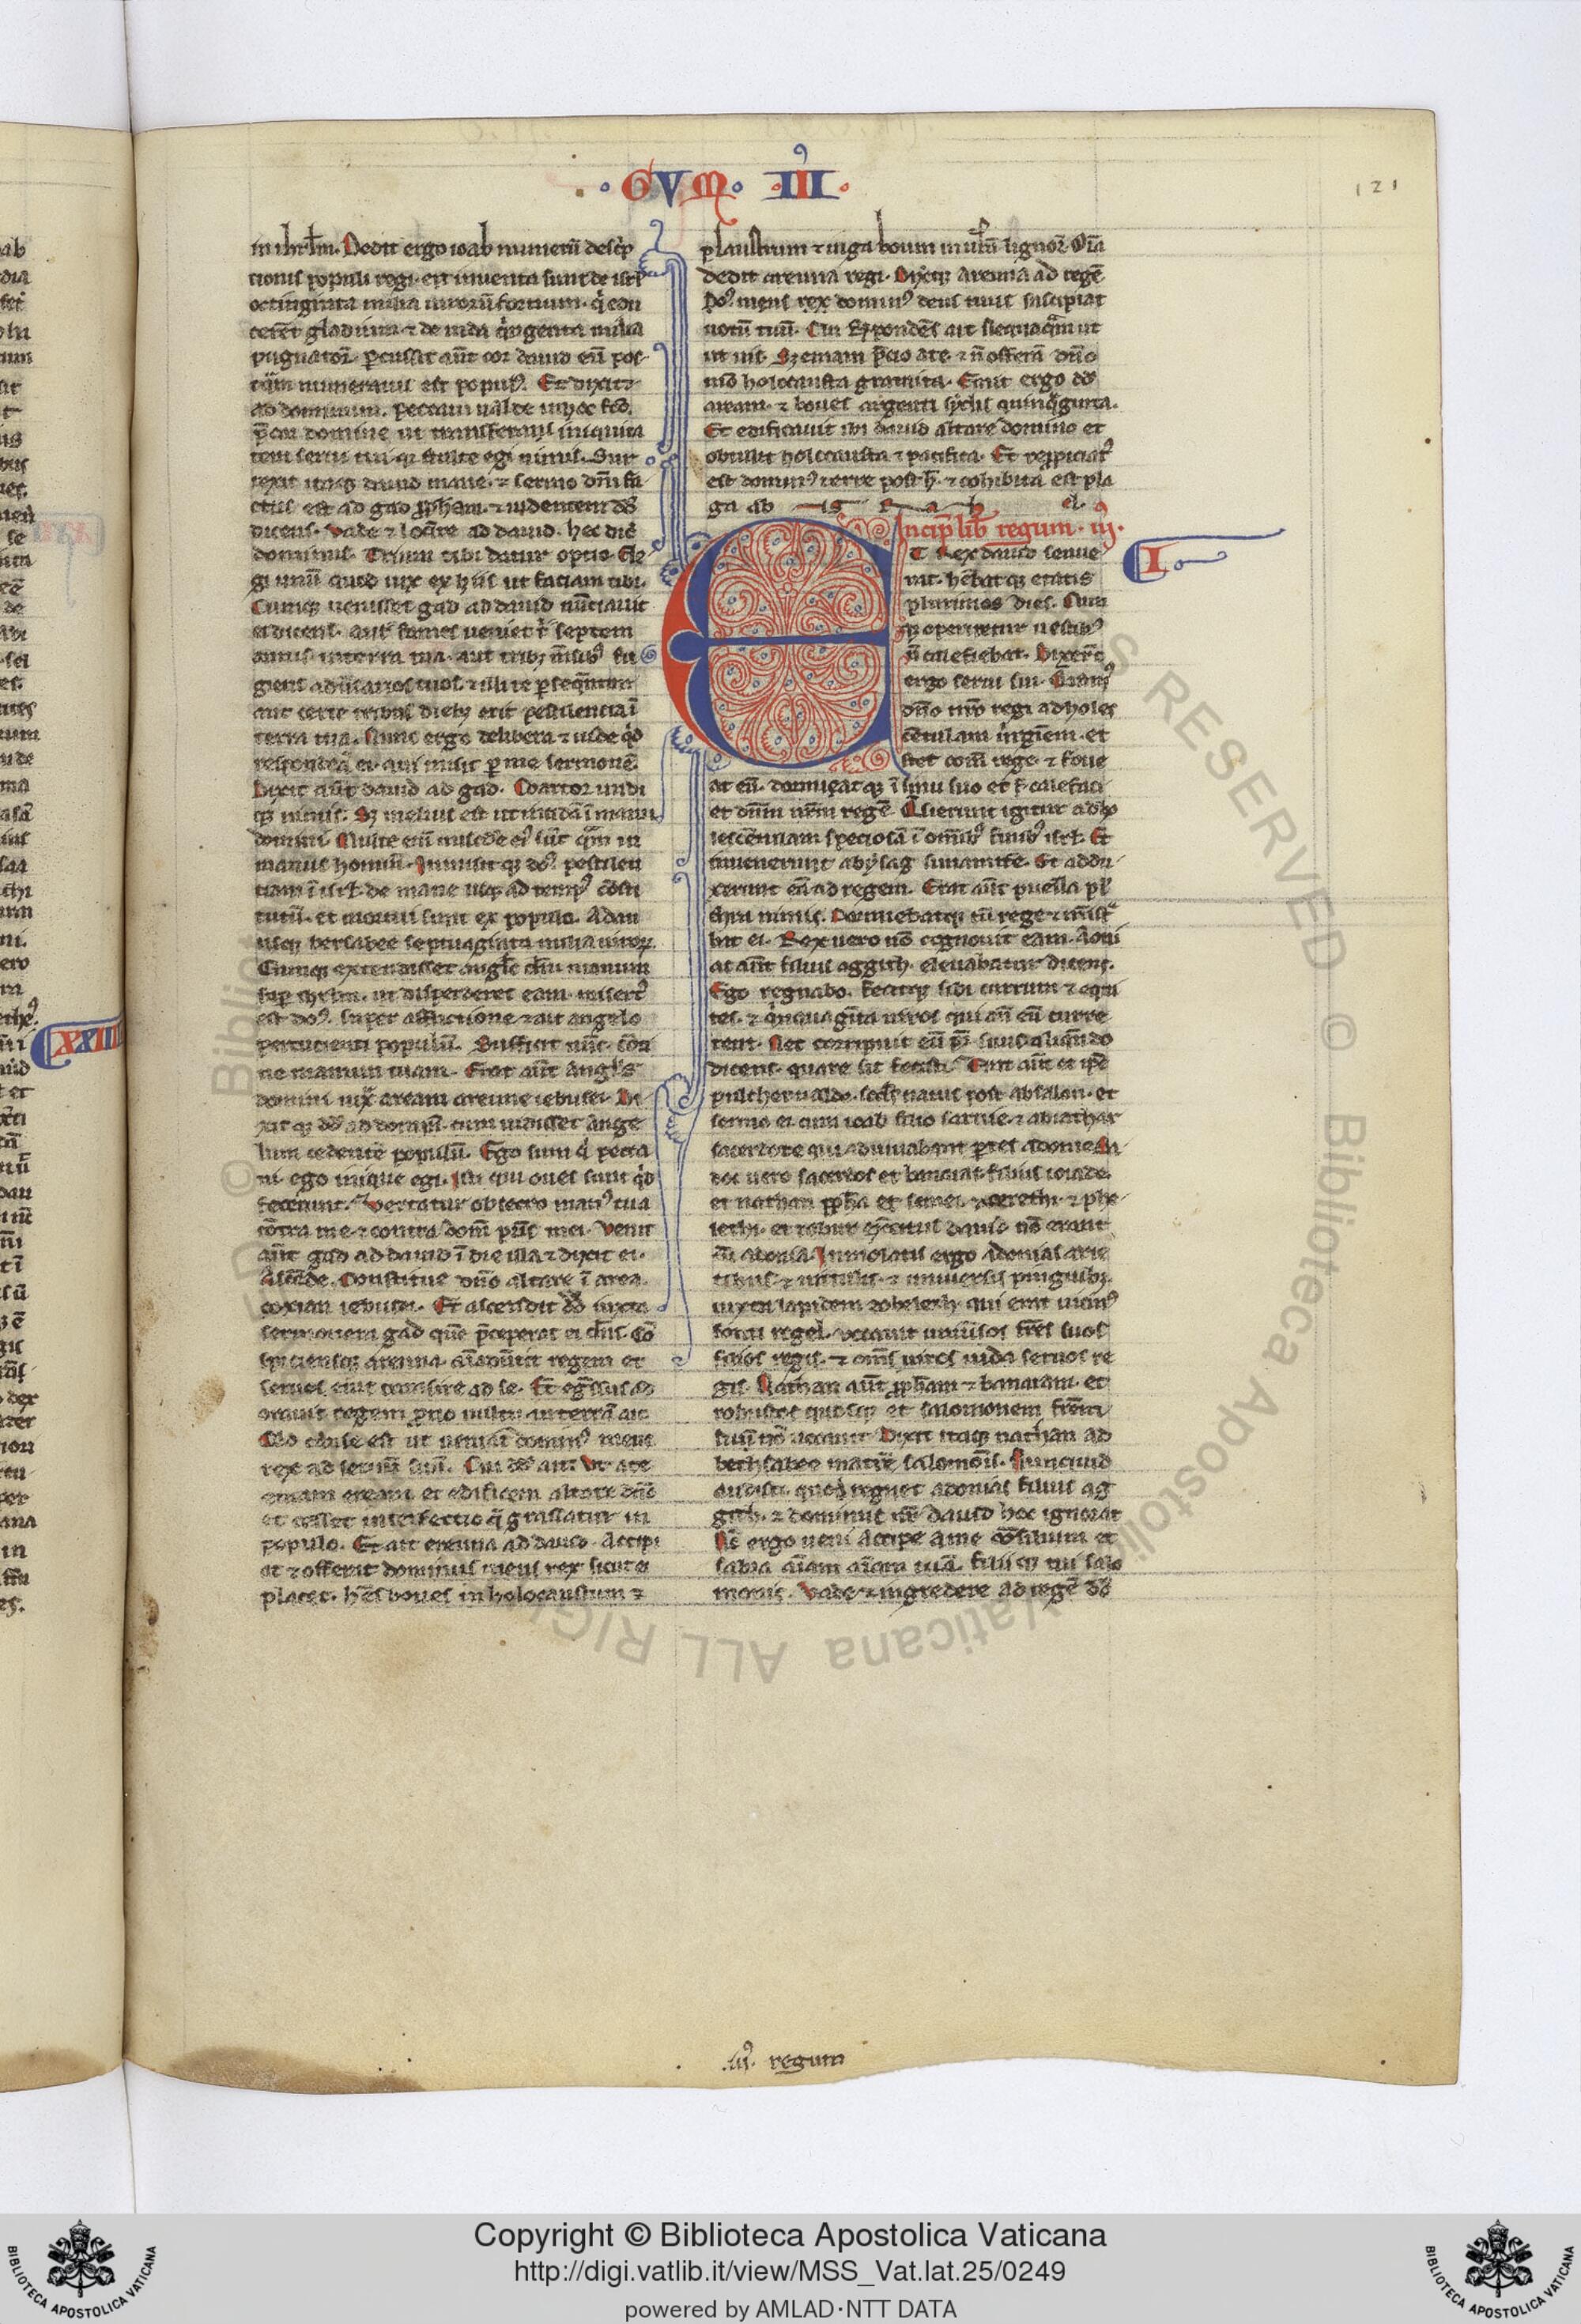 GVM III
121
in ihrl̄m. Dedit ergo ioab numerū desc̄p
tionis populi regi. et inuenta sunt de isrl̄
octingenta milia uirorū fortium. q̇ edu
cerēt gladium. ⁊ de iuda q̇ngenta milia
pugnatoꝝ. percussit aūt cor dauid eū pos
tq̄m numeratus est popul⁹. Et dixit
ad dominum. peccaui ualde in hoc fc̄o.
p̄cor domine ut transferas iniquita
tem serui tui. qꝛ stulte egi nimis. Sur
rexit itaqꝫ dauid mane. ⁊ sermo dn̄i fa
ctus est ad gad ꝓph̄am. ⁊ uidentem dd̄
dicens. Vade ⁊ loq̄re ad dauid. hec dic̄
dominus. Trium tibi datur optio. Ele
gi unū quod uix ex hiis ut faciam tibi.
Cumqꝫ uenisset gad ad dauid nūtiauit
ei dicens. aut fames ueniet t̄ septem
annis in terra tua. aut tribꝫ m̄sibꝫ fu
gies aduersarios tuos. ⁊ illi te ꝑsequentur
aut certe tribus diebꝫ erit pestilentia ī
terra tua. Nunc ergo delibera ⁊ uide q̇d
respondeā ei. qui misit ꝑ me sermonē.
Dixit aūt dauid ad gad. Coartor undi
qꝫ nimis. Sꝫ melius est ut incidā ī manus
domini. Multe enī misc̄de ei⁹ sūt. q̄m in
manus hominū. Inmisitqꝫ do⁹. pestilen
tiam ī isrl̄. de mane usqꝫ ad temp⁹ cōsti
tutū. et mortui sunt ex populo. Adan
usqꝫ bersabee septuaginta milia uiroꝝ.
Cumqꝫ extendisset angl̄s dn̄i manum
sup̄ ihrl̄m. ut disperderet eam. misert⁹
est do⁹. super afflictione. ⁊ ait angelo
percutienti populū. Sufficit nūc. cōti
ne manum tuam. Erat aūt angl̄s
domini iux̄ aream areune iebusei. Di
xitqꝫ dd̄ ad dominū. cum uidisset ange
lum cedentē populū. Ego sum q̇ pecca
ui. ego inique egi. isti qui oues sunt q̇d
fecerunt. Vertatur obsecro man⁹ tua
cōtra me. ⁊ contra domū pr̄is mei. Venit
aūt gad ad dauid ī die illa ⁊ dixit ei.
Ascēde. Constitue dn̄o altare ī area.
coxian iebusei. Et ascendit dd̄ iuxta
sermonem gad quē p̄ceperat ei dn̄s. Cō
spiciensqꝫ areuna. aīaduertit regem et
seruos eius transire ad se. Et egr̄ssus ad
orauit regem prono uultu in terrā ait
Qd̄ cause est ut ueniat domin⁹ meus
rex ad seruū suū. Cui dd̄ ait. Vt a te
emam aream et edificem altare dn̄o
et cesset interfectio q̄ grassatur in
populo. Et ait areuna ad dauid. Accipi
at ⁊ offerat dominus meus rex sicut ei
placet. hēs boues in holocaustum ⁊
plaustrum ⁊ iuga boum in usū lignoꝝ. Oīa
dedit areuna regi. Dixitqꝫ areuna ad regē
Do⁹ meus rex domin⁹ deus tuus suscipiat
uotū tuū. Cui respondēs ait. Nequaq̄m ut
ut uis. Sꝫ emam p̄cio a te. ⁊ nō offerā dn̄o
meo holocausta gratuita. Emit ergo dd̄
aream. ⁊ boues argenti siclis quinq̄ginta.
Et edificauit ibi dauid altare domino et
obtulit holocausta ⁊ pacifica. Et repropiciat⁹
est domin⁹ terre post h̄. ⁊ cohibita est pla
ga ab is r a h el.
Incip̄ lib̄ regum. iij.
I
ET Rex dauid senue
rat. hēbatqꝫ etatis
plurimos dies. Cum
qꝫ operiretur uestibꝫ
nō calefiebat. Dixerūt
ergo serui sui. Querams
dn̄o nr̄o regi adholes
cētulam uirginem. et
stet corā rege. ⁊ foue
at eū. dormiatqꝫ ī sinu suo et calefaci
et dn̄m nr̄m regē. Quesierunt igitur adho
lescentulam speciosā ī omībꝫ finibꝫ isrl̄. Et
inuenerunt abysag sunamite. Et addu
xerunt eā ad regem. Erat aūt puella pul
chra nimis. Dormiebatqꝫ cū rege ⁊ mīstra
bat ei. Rex uero nō cognouit eam. Adoni
as aūt filius aggith. eleuabatur dicens.
Ego regnabo. Fecitqꝫ sibi currum ⁊ equi
tes. ⁊ q̇nquaginta uiros qui an̄ eū curre
rent. Nec corripuit eū pr̄ suus aliquādo
dicens. quare sic fecisti. Erat aūt et ipse
pulcher ualde. scd̄s natus post absalon. et
sermo ei cum ioab filio saruie. ⁊ abiathar
sacerdote qui adiuuabant partes adonie. Sa
doc uero sacerdos et banaias filius ioiade.
et nathan ꝓph̄a et semei. ⁊ cerethi. ⁊ phe
lethi. et robur exercitus dauid nō erant
cū adonia. Immolatis ergo adonias arie
tibus. ⁊ uitulis. ⁊ uniuersis pinguibꝫ.
iuxta lapidem zoheleth. qui erat uicin⁹
fonti rogel. uocauit uniūsos fr̄es suos
filios regis. ⁊ om̄s uiros iuda seruos re
gis. Nathan aūt ꝓph̄am ⁊ banaiam. et
robustos quosqꝫ et salomonem frēm
suū nō uocauit. Dixit itaqꝫ nathan ad
bethsabee matrē salomōis. Nunquid
audisti. quod regnet adonias filius ag
gith. ⁊ dominus nr̄ dauid hoc ignorat
Nc̄ ergo ueni accipe a me cōsilium et
salua aīam tuā. filiiqꝫ tui salo
monis. Vade ⁊ ingredere ad regē dd̄
iij. regum
XXIII
Copyright © Biblioteca Apostolica Vaticana
http://digi.vatlib.it/view/MSS_Vat.lat.25/0249
powered by AMLAD·NTT DATA
BIBLIOTECA APOSTOLICA VATICANA
BIBLIOTECA APOSTOLICA VATICANA